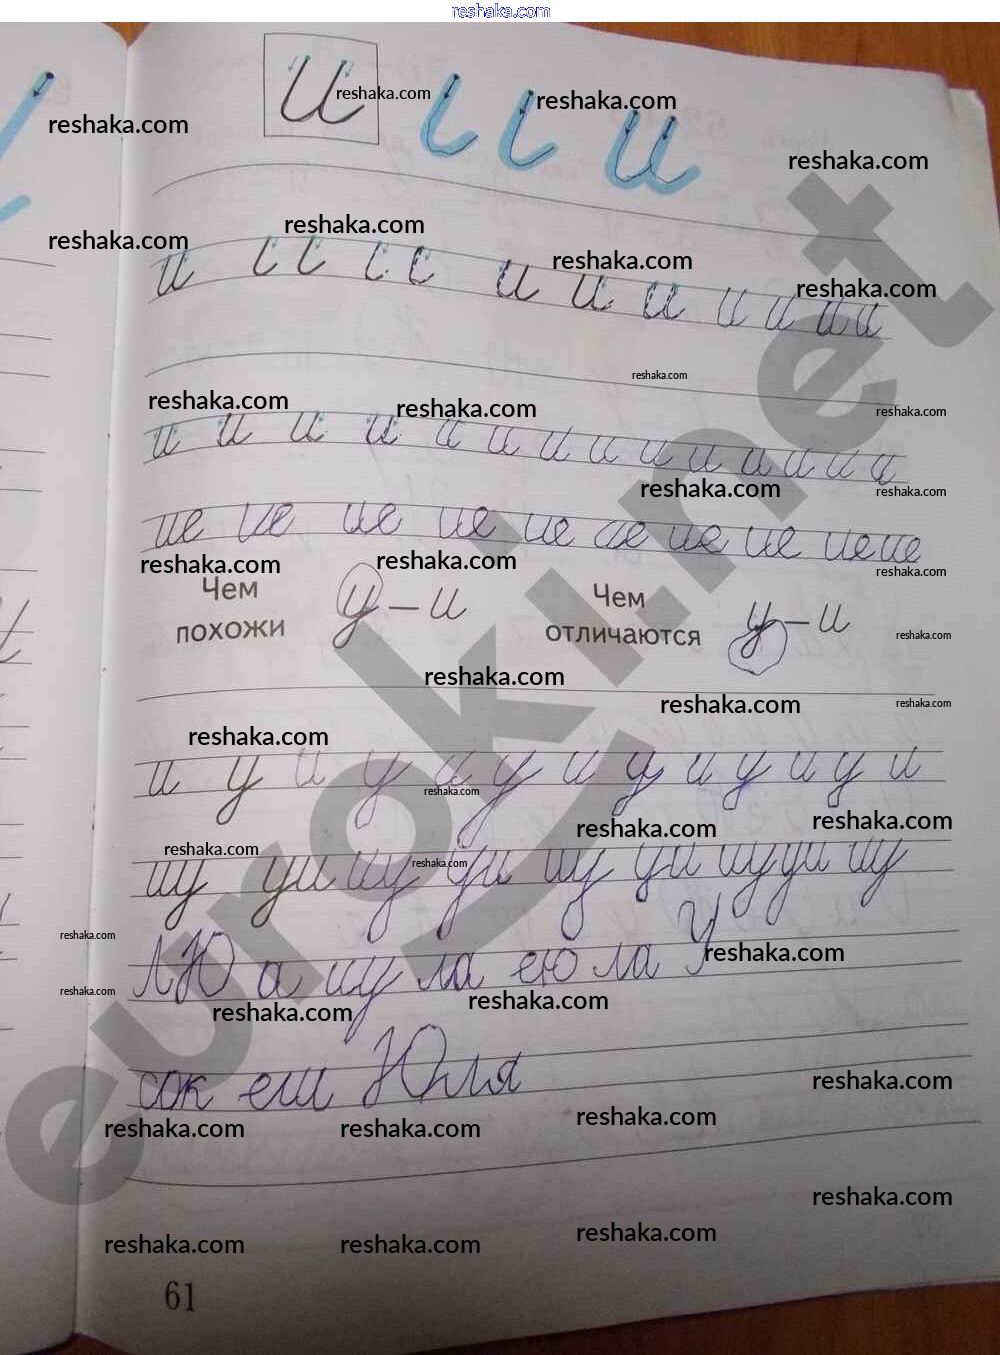 reshaka.com
и
reshaka.com
reshaka.com
reshaka.com
reshaka.com
и
reshaka.com
reshaka.com
reshaka.com
reshaka.com
и и и и и и и и
reshaka.com
reshaka.com
reshaka.com
reshaka.com
и и и и и и и и и и и и и и и
reshaka.com
reshaka.com
ие ие ие ие ие ие ие ие ие ие
reshaka.com
reshaka.com
reshaka.com
Чем похожи у – и Чем отличаются у – и
reshaka.com
reshaka.com
reshaka.com
reshaka.com
reshaka.com
и у и у и у и у и у и у и
reshaka.com
reshaka.com
reshaka.com
reshaka.com
reshaka.com
иу уи иу уи иу уи иу уи иу
reshaka.com
reshaka.com
reshaka.com
reshaka.com
reshaka.com
Юля
reshaka.com
reshaka.com
reshaka.com
reshaka.com
reshaka.com
reshaka.com
reshaka.com
reshaka.com
61
euroki.net